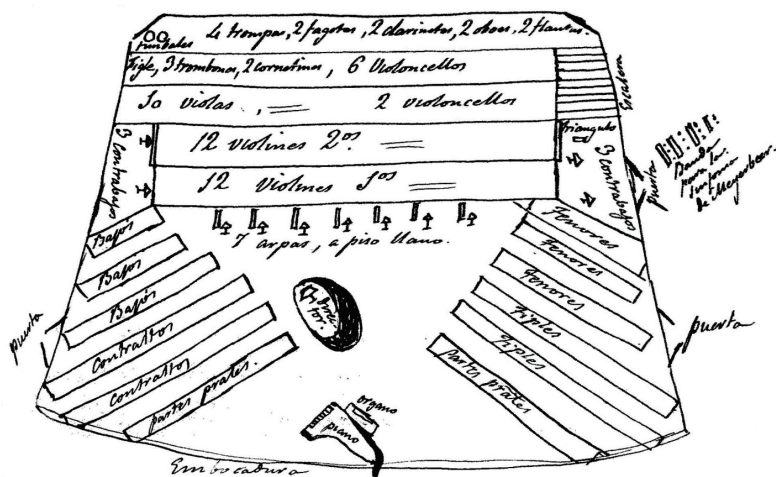 timbales
4 trompas, 2 fagotes, 2 clarinetes, 2 oboes, 2 flautas.
Figle, 3 trombones, 2 cornetines, 6 Violoncellos
10 violas, 2 violoncellos
Escalera
12 violines 2os.
12 violines 1os
3 Contrabajos
triangulo
3 Contrabajos
puerta
Banda
para la
sinfonia
de Meyerbeer.
7 arpas, a piso llano.
Bajos
Bajos
Bajos
Contraltos
Contraltos
partes prales.
puerta
Direc
tor.
Tenores
Tenores
Tenores
Tiples
Tiples
partes prales
puerta
organo
piano
Embocadura